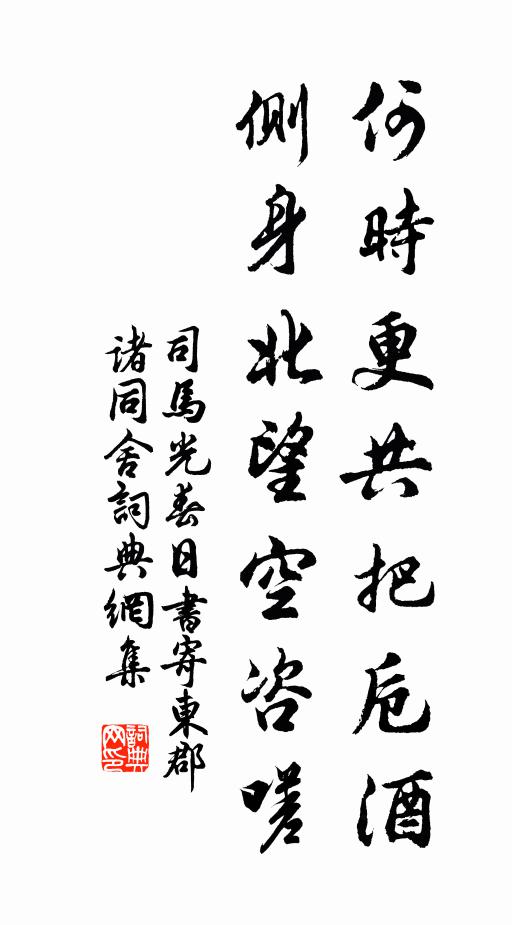 何時更共把卮酒
側身北望空咨嗟
司馬光春日書寄東郡
諸同舍詞典網集
詞典
网印